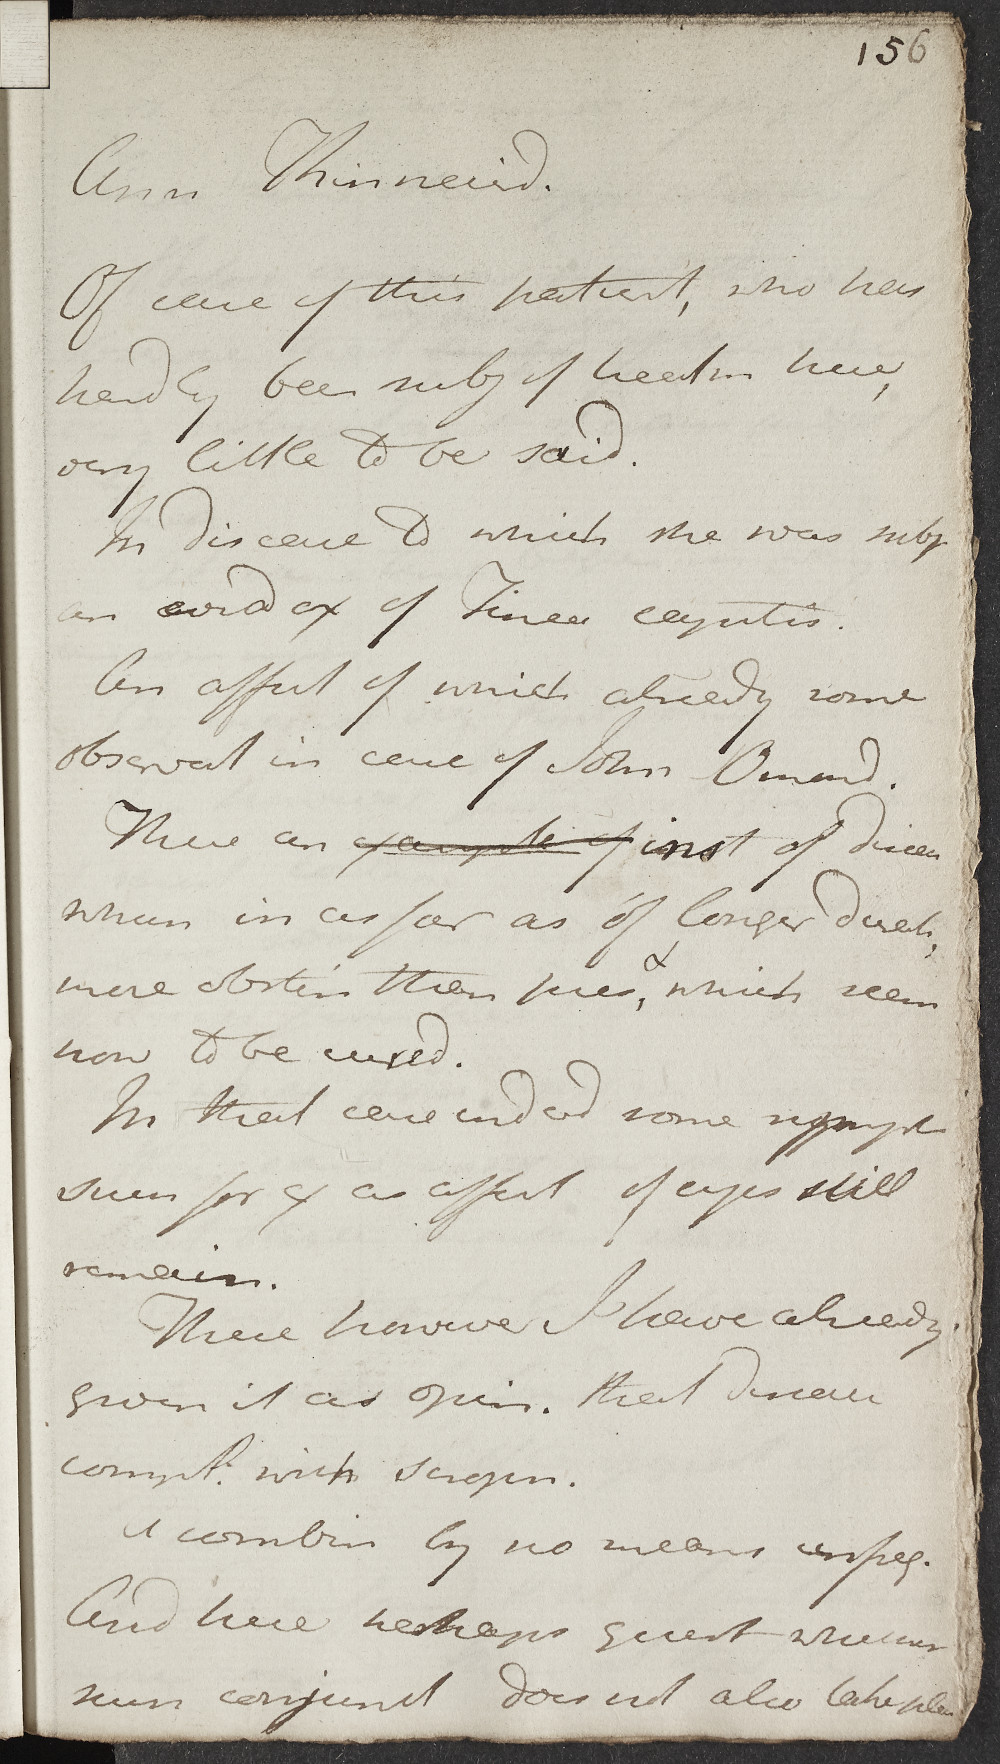 156
Ann Kinneird.
Of case of this patient, who has
hardly been subj of treatm here,
very little to be said.
In disease to which she was subj
an evid ex of Tinea capitis.
An affect of which already some
observat in case of John
There an example of inst of disea
when in as far as of longer durat,
more obstin than pres, & which seem
now to be cured.
In that case indeed some sympt
such for ex as affect of eyes still
remain.
There however I have already
given it as opin. that disease
compt. with scropu.
A combin by no means unfreq.
And here perhaps quest whether
such conjunct does not also take place